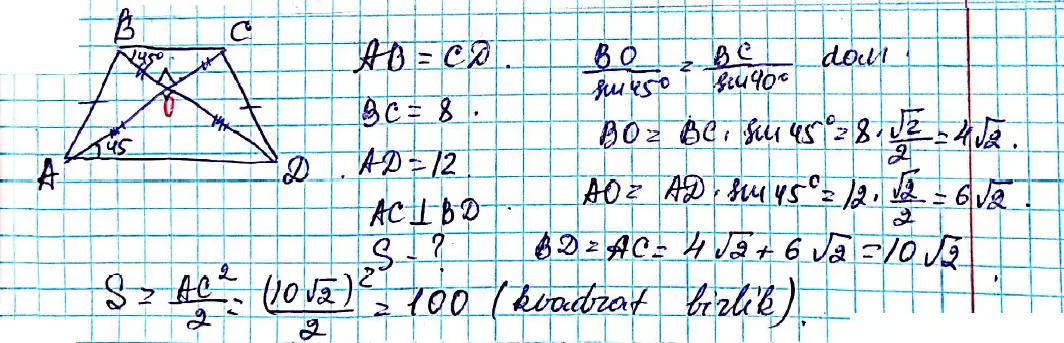 B C
45°
O
45
A D
AB = CD.
BC = 8.
AD = 12.
AC ⊥ BD.
S - ?
BO/sin45° = BC/sin40° dan
BO = BC · sin 45° = 8 · √2/2 = 4√2.
AO = AD · sin 45° = 12 · √2/2 = 6√2.
BD = AC = 4√2 + 6√2 = 10√2.
S = AC²/2 = (10√2)²/2 = 100 (kvadrat birlik).